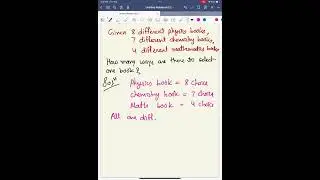 Given 8 different physics books,
7 different chemistry books,
4 different mathematics books
How many ways are there to select
one book?
Soln
Physics book = 8 choice
chemistry book = 7 choice
Maths book = 4 choice
All are diff.